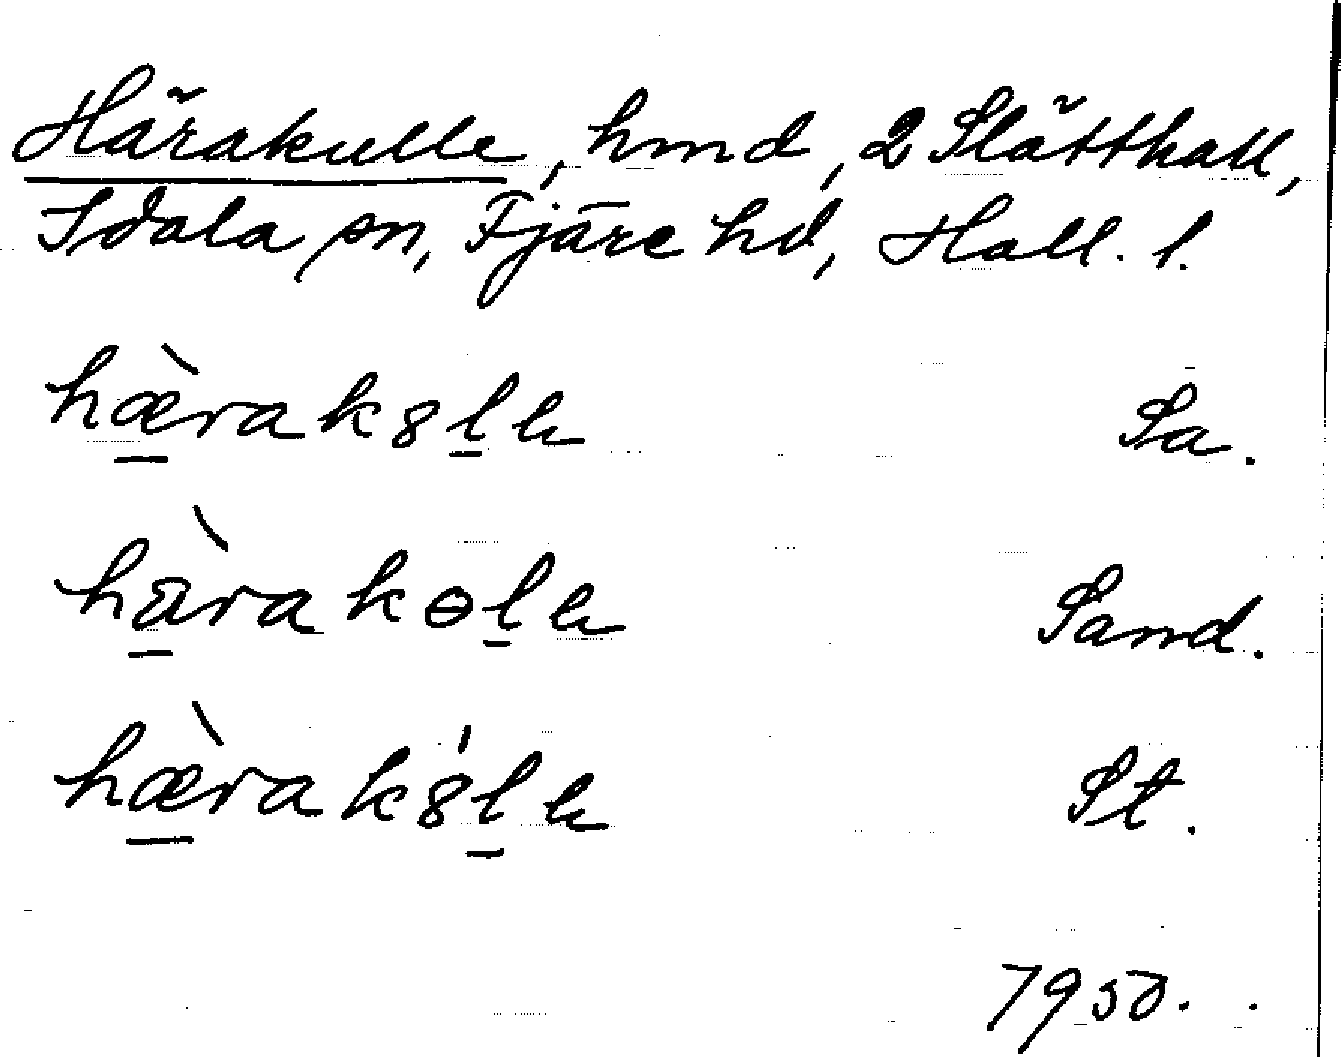 Härakulle, hmd, 2 Slätthall,
Idala sn, Fjäre hd, Hall. l.
hæ̀rak8le Sa.
hàrakɵle Sand.
hæ̀rak8́le St.
1950.